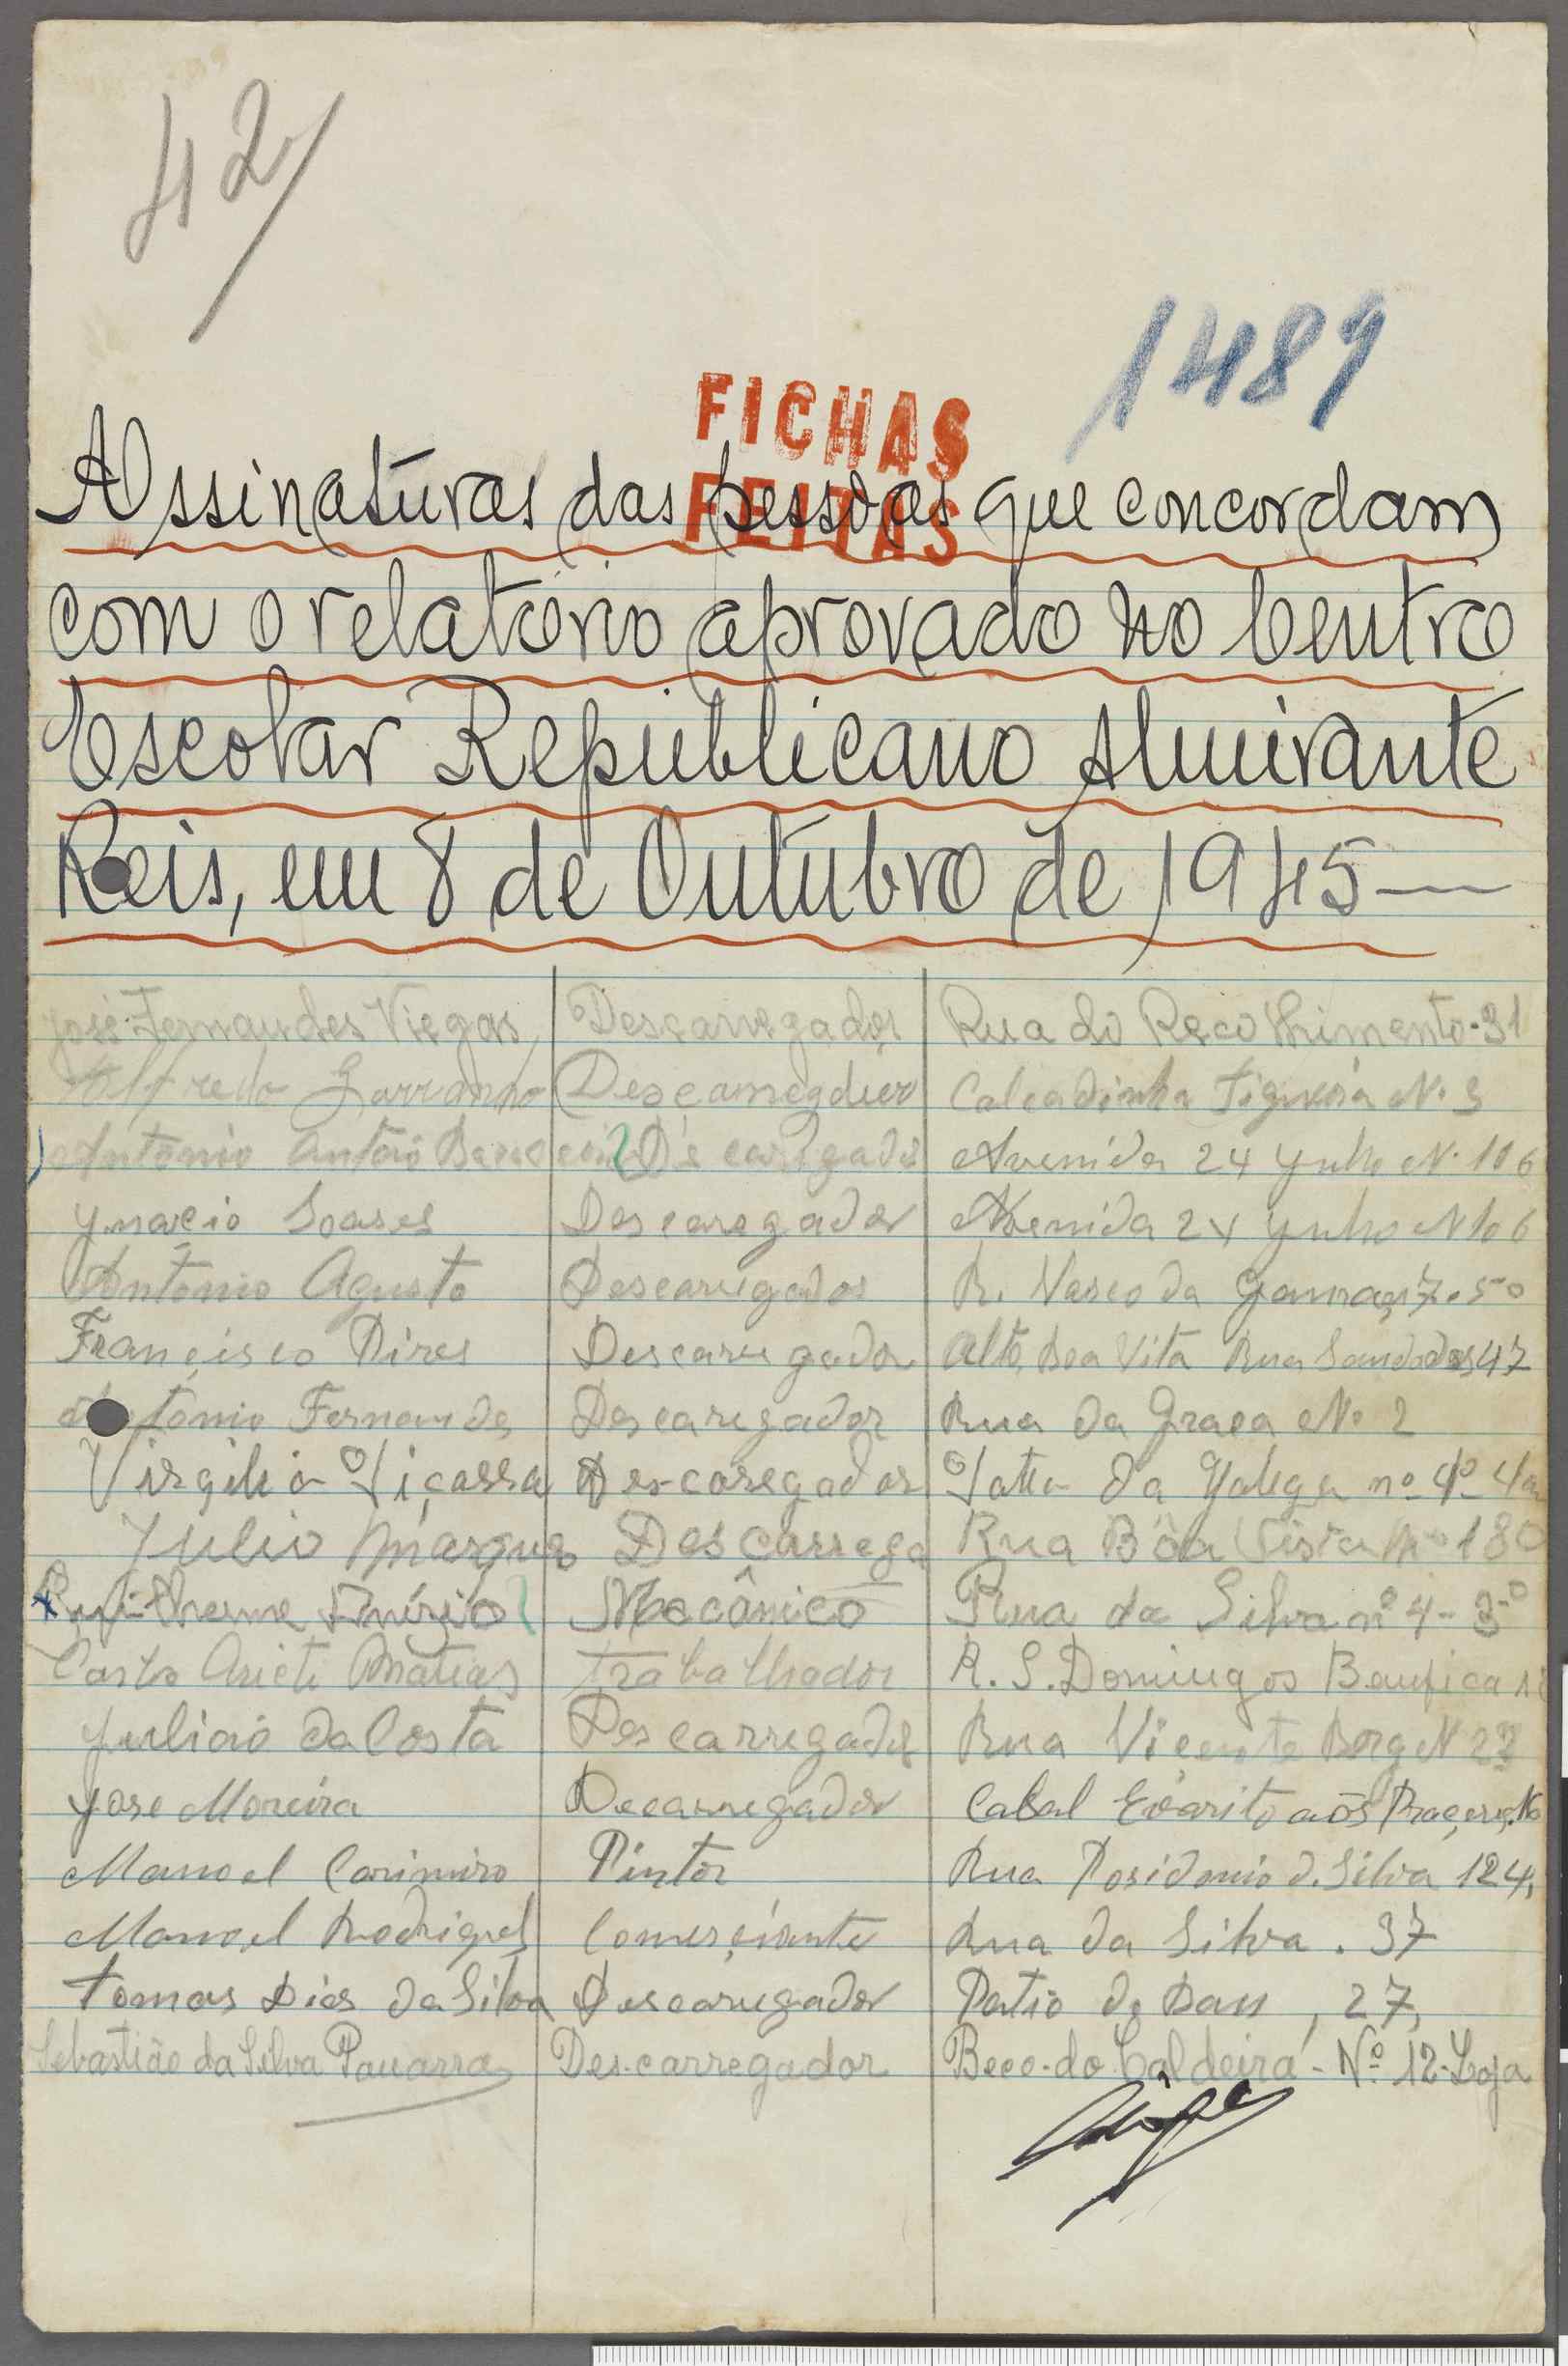 42
1489
FICHAS
FEITAS
Assinaturas das pessoas que concordam
com o relatório aprovado no Centro
Escolar Republicano Almirante
Reis, em 8 de Outubro de 1945
José Fernandes Viegas Descarregador Rua do Recolhimento-31
Alfredo Descarregador Calçadinha Figueira N. 3
António Antão Descarregador Avenida 24 Julho N. 106
Ynacio Soares Descaregador Avenida 24 Julho N 106
António Agusto Descarregador R. Vasco da Gama, 7. 5º
Francisco Pires Descaregador Alto Boa Vita Rua Saudades 47
António Fernandes Descaregador Rua da Graça Nº 2
Virgilio Viçossa Descaregador da Galega nº 4
Julio Marques Descarrega Rua Bôa Vista Nº 180
Mecânico Rua da Silva nº 4-3º
Carlos Matias trabalhador R. S. Domingos Benfica
Julião da Costa Descarregador Rua Vicente Borg N 22
José Moreira Decarregador Casal Evaristo aos Prazeres, N
Manoel Casimiro Pintor Rua Posidonio d. Silva 124,
Manoel Rodrigues Comerciante Rua da Silva. 37
tomas Dias da Silva Descaregador Patio do 27,
Sebastião da Silva Panarra Descarregador Beco do Caldeira - Nº 12-Loja